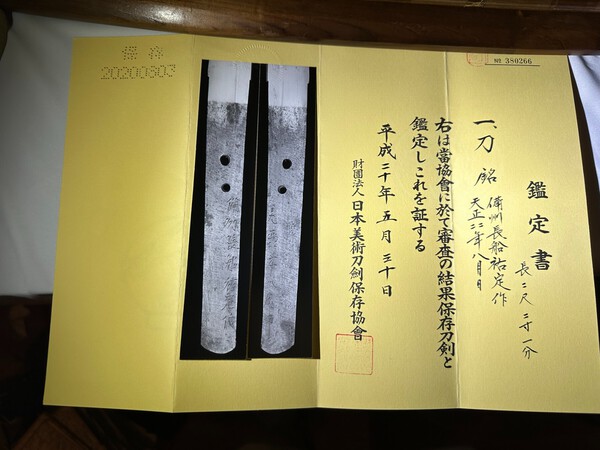 № 380266
鑑定書
一、刀 銘 備州長船祐定作
天正二年八月日
長二尺二寸一分
右は當協會に於て審査の結果保存刀劍と
鑑定しこれを証する
平成二十年五月三十日
財團法人 日本美術刀劍保存協會
保存
20200803